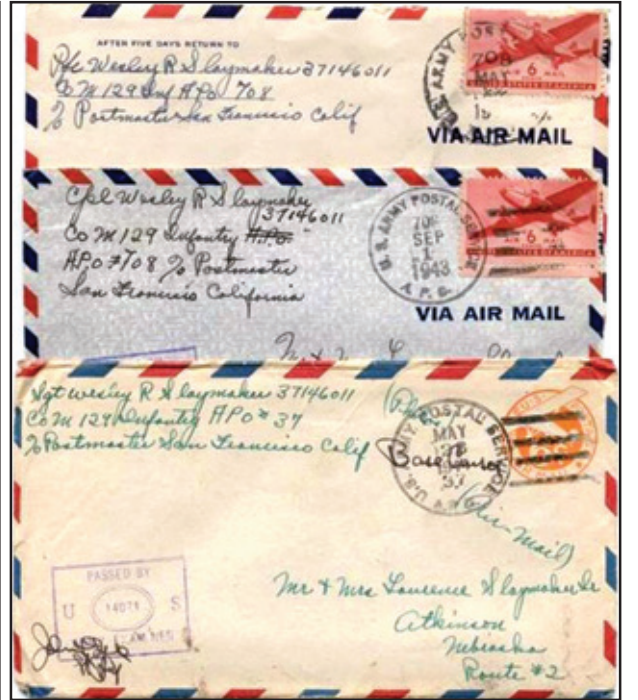 AFTER FIVE DAYS RETURN TO
Pfc Wesley R Slaymaker 37146011
Co M 129 Inf APO 708
% Postmaster San Francisco Calif
U.S. ARMY POSTAL
708
MAY
6
AIR MAIL
UNITED STATES OF AMERICA
VIA AIR MAIL
Cpl Wesley R Slaymaker
37146011
Co M 129 Infantry A.P.O.
A.P.O #708 % Postmaster
San Francisco California
U.S. ARMY POSTAL SERVICE
708
SEP
1
1943
A. P. O.
6
VIA AIR MAIL
Sgt Wesley R Slaymaker 37146011
Co M 129 Infantry APO # 37
% Postmaster San Francisco Calif
U.S. ARMY POSTAL SERVICE
MAY
28
37
Base Censor
(Air Mail)
PASSED BY
U 14071 S
EXAMINER
Mr & Mrs Lawrence Slaymaker Sr
Atkinson
Nebraska
Route #2